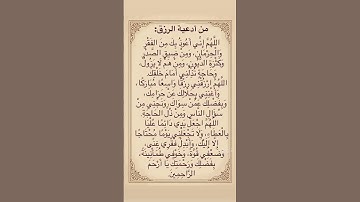 من أدعية الرزق:
اللَّهُمَّ إِنِّي أَعُوذُ بِكَ مِنَ الْفَقْرِ
وَالْحِرْمَانِ، وَمِنْ ضِيقِ الصَّدْرِ
وَكَثْرَةِ الدُّيُونِ، وَمِنْ هَمٍّ لَا يَزُولُ،
وَحَاجَةٍ تُذِلُّنِي أَمَامَ خَلْقِكَ.
اللَّهُمَّ ارْزُقْنِي رِزْقًا وَاسِعًا مُبَارَكًا،
وَأَغْنِنِي بِحَلَالِكَ عَنْ حَرَامِكَ،
وَبِفَضْلِكَ عَمَّنْ سِوَاكَ، وَنَجِّنِي مِنْ
سُؤَالِ النَّاسِ وَمِنْ ذُلِّ الْحَاجَةِ.
اللَّهُمَّ اجْعَلْ يَدِي دَائِمًا عُلْيَا
بِالْعَطَاءِ، وَلَا تَجْعَلْنِي يَوْمًا مُحْتَاجًا
إِلَّا إِلَيْكَ، وَأَبْدِلْ فَقْرِي غِنًى،
وَضَعْفِي قُوَّةً، وَخَوْفِي طُمَأْنِينَةً،
بِفَضْلِكَ وَرَحْمَتِكَ يَا أَرْحَمَ
الرَّاحِمِينَ